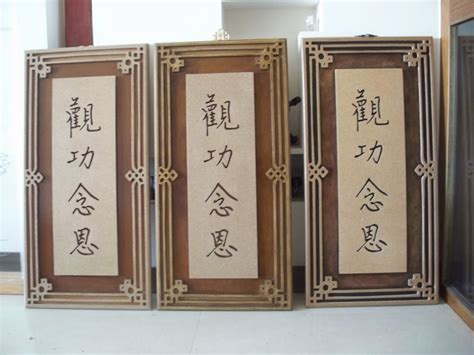 觀功念恩
觀功念恩
觀功念恩